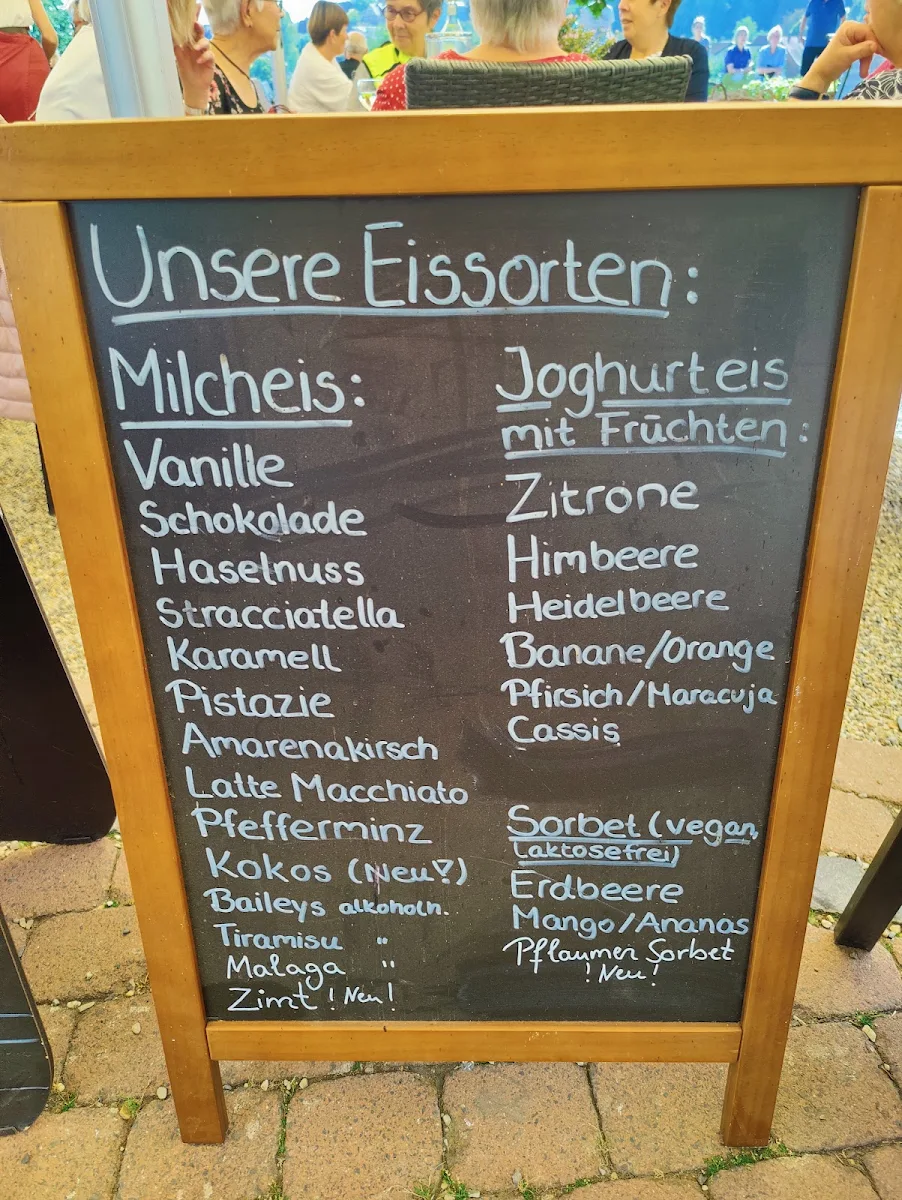 Unsere Eissorten:
Milcheis:
Vanille
Schokolade
Haselnuss
Stracciatella
Karamell
Pistazie
Amarenakirsch
Latte Macchiato
Pfefferminz
Kokos (Neu!)
Baileys alkoholh.
Tiramisu "
Malaga "
Zimt ! Neu!
Joghurteis
mit Früchten:
Zitrone
Himbeere
Heidelbeere
Banane/Orange
Pfirsich/Maracuja
Cassis
Sorbet (vegan,
laktosefrei)
Erdbeere
Mango/Ananas
Pflaumen Sorbet
! Neu!